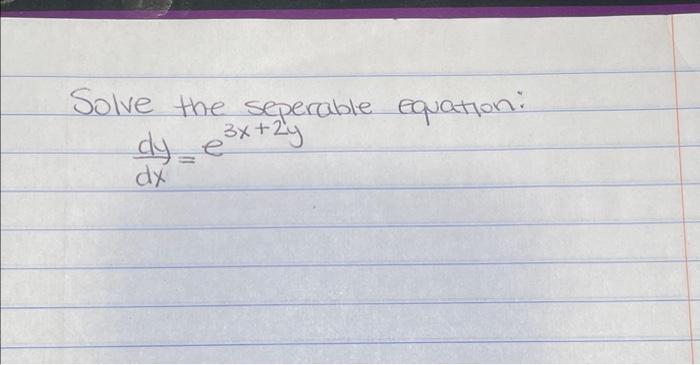 Solve the seperable equation:
dy/dx = e^{3x+2y}